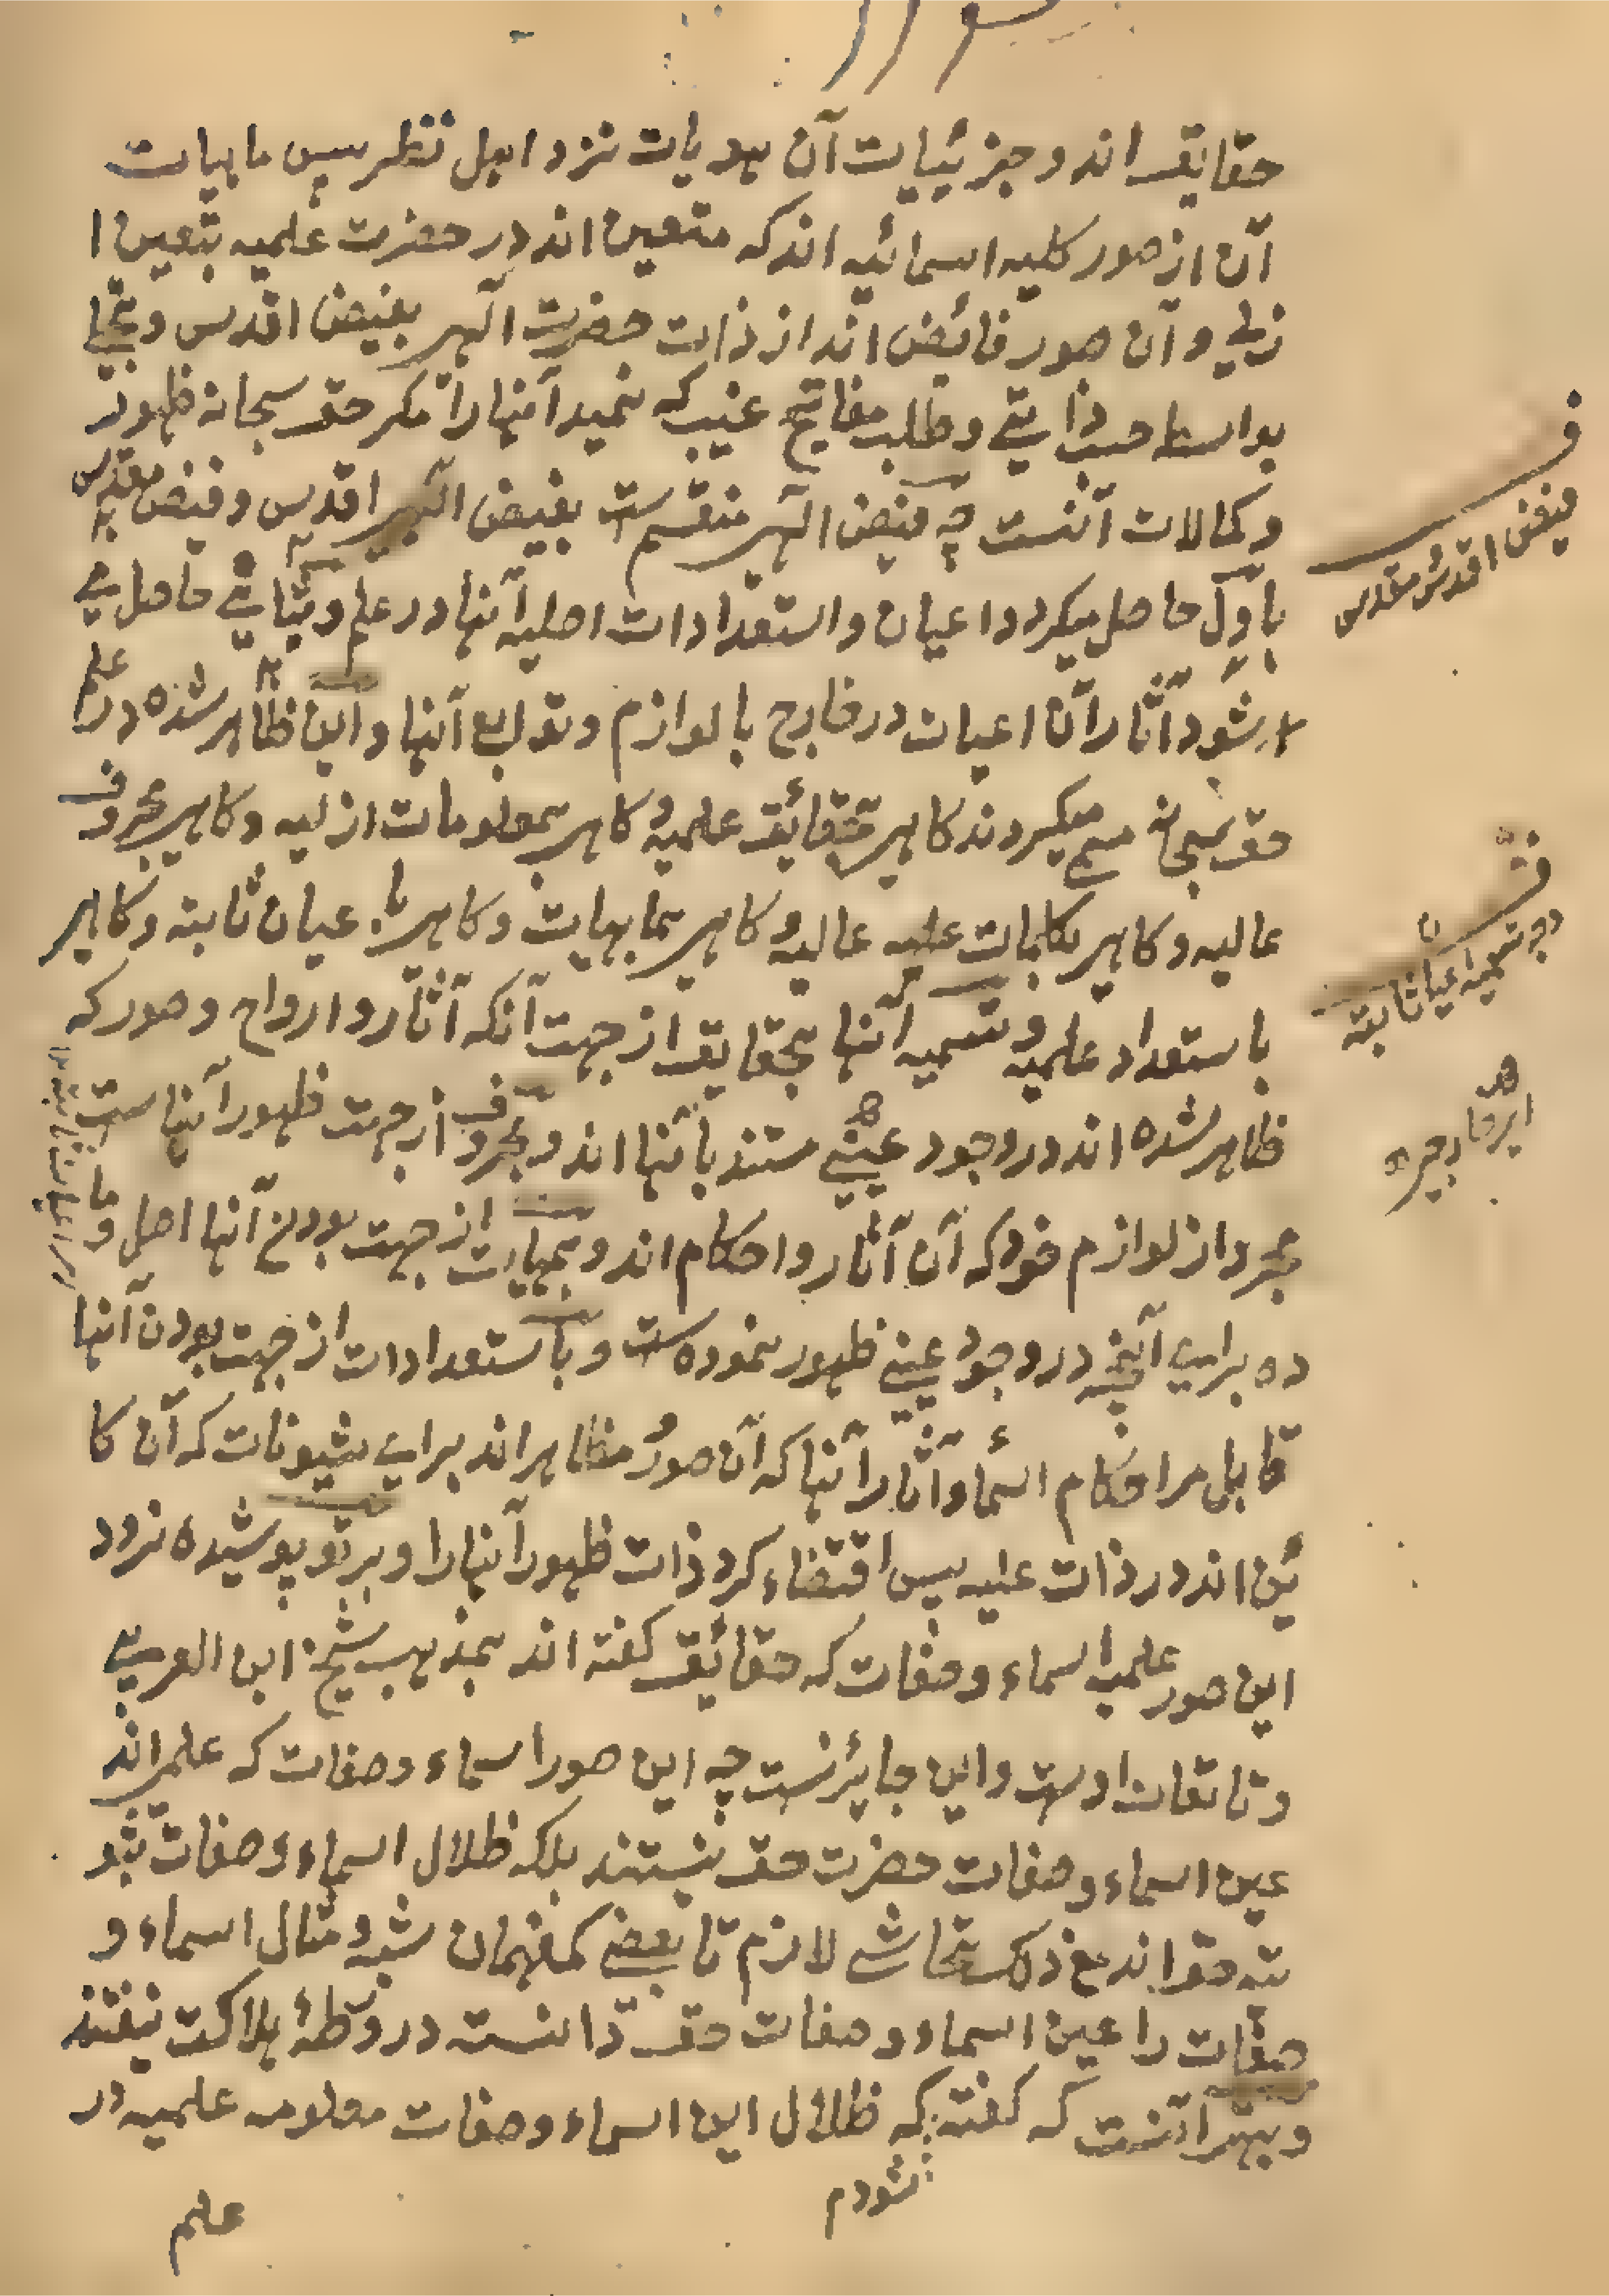 حقایق اند و جزئیات آن هویات نزد اهل نظر پس ماهیات
آن از صور کلیه اسمائیه اند که متعین اند در حضرت علمیه بتعین ا
زلی و آن صور فائض اند از ذات حضرت الهی بفیض اقدس و تجلی
بواسطه حب ذاتی و طلب مفاتیح غیب که نمیداند آنها را مگر حق سبحانه ظهور
و کمالات آنست چه فیض الهی منقسم ست بفیض الهی اقدس و فیض مقدس
باول حاصل میگردد اعیان و استعدادات اصلیه آنها در علم و بثانی حاصل می
شود آثار آن اعیان در خارج با لوازم و توابع آنها و این ظاهر شده در علم
حق سبحانه مسمی میگردند گاهی بحقائق علمیه و گاهی بمعلومات ازلیه و گاهی بحروف
عالیه و گاهی بکلمات علیه عالیه و گاهی بماهیات و گاهی باعیان ثابته و گاهی
باستعداد علمیه و تسمیه آنها بحقایق از جهت آنکه آثار و ارواح و صور که
ظاهر شده اند در وجود عینی مستند بآنها اند و بحروف از جهت ظهور آنهاست
مجرد از لوازم خود که آن آثار و احکام اند و بماهیات از جهت بودن آنها اصل و ما
ده برای آنچه در وجود عینی ظهور نموده ست و باستعدادات از جهت بودن آنها
قابل مر احکام اسماء و آثار آنها که آن صور مظاهر اند برای شیونات که آن کا
ئن اند در ذات علیه پس اقتضاء کرد ذات ظهور آنها را و بر تو پوشیده نرود
این صور علمیه اسماء و صفات که حقائق گفته اند بمذهب شیخ ابن العربی
و تابعان اوست و این جائز نست چه این صور اسماء و صفات که علمی اند
عین اسماء و صفات حضرت حق نیستند بلکه ظلال اسماء و صفات ثبو
ته حق اند مع ذلک تحاشی لازم تا بعضی کم فهمان شبه و مثال اسماء و
صفات را عین اسماء و صفات حق دانسته در ورطهٔ هلاکت نیفتند
و بهتر آنست که گفته که ظلال این اسماء و صفات معلومه علمیه در
شودم
علم
ف
فیض اقدس مقدس
ف
وجه تسمیه اعیان ثابته